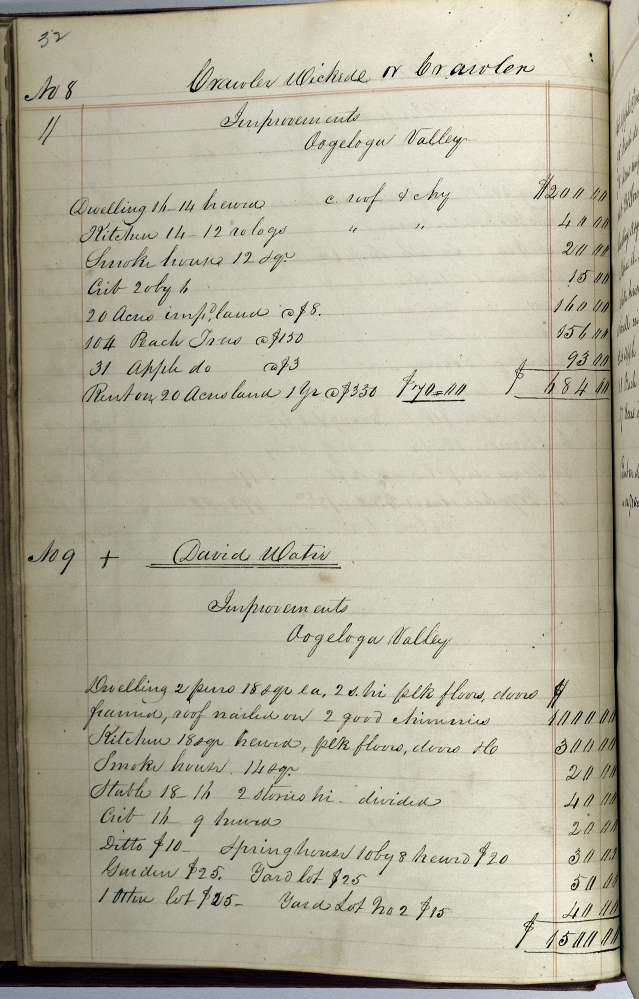 32
No 8 Crawler Wickede or Crawler
11 Improvements
Oogeloga Valley
Dwelling 16-14 hewed c. roof & chy $200 00
Kitchen 14-12 ro logs " " 40 00
Smoke house 12 sqr 20 00
Crib 20 by 6 15 00
20 Acres imp'd land @ $8. 160 00
104 Peach Trees @ $150 156 00
31 Apple do @ $3 93 00
Rent on 20 Acres land 1 Yr @ $350 $70=00 $ 684 00
No 9 + David Watie
Improvements
Oogeloga Valley
Dwelling 2 pens 18 sqr ea, 2 s. hi plk floors, doors $
framed, roof nailed on 2 good chimnies 1000 00
Kitchen 18 sqr hewed, plk floors, doors &c 300 00
Smoke house 14 sqr 20 00
Stable 18-16 2 stories hi - divided 40 00
Crib 16-9 hewed 20 00
Ditto $10- Spring house 10 by 8 hewed $20 30 00
Garden $25. Yard lot $25 50 00
1 Other lot $25- Yard Lot No 2 $15 40 00
$ 1500 00